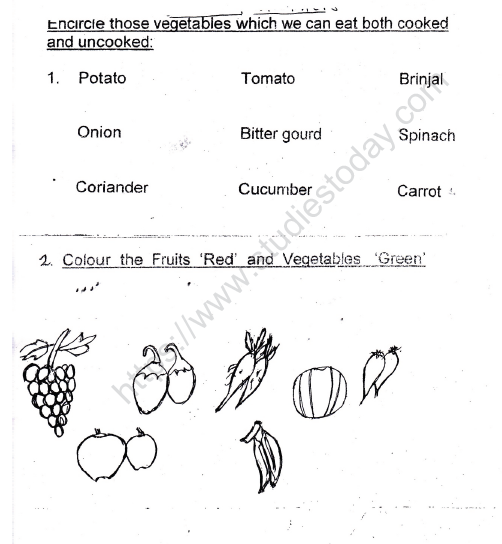 Encircle those vegetables which we can eat both cooked
and uncooked:
1. Potato Tomato Brinjal
Onion Bitter gourd Spinach
Coriander Cucumber Carrot
2. Colour the Fruits 'Red' and Vegetables 'Green'
https://www.studiestoday.com